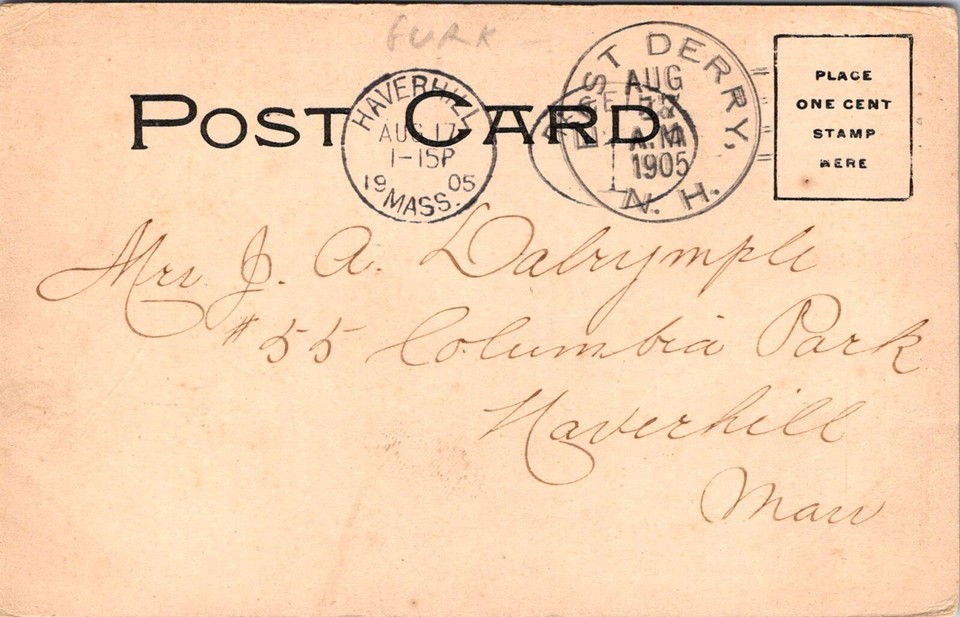 GURK
POST CARD
HAVERHILL
AUG 17
1-15P
19 05
MASS.
EAST DERRY,
AUG
A.M.
1905
N. H.
PLACE
ONE CENT
STAMP
HERE
Mrs. J. A. Dalrymple
#55 Columbia Park
Haverhill
Mass